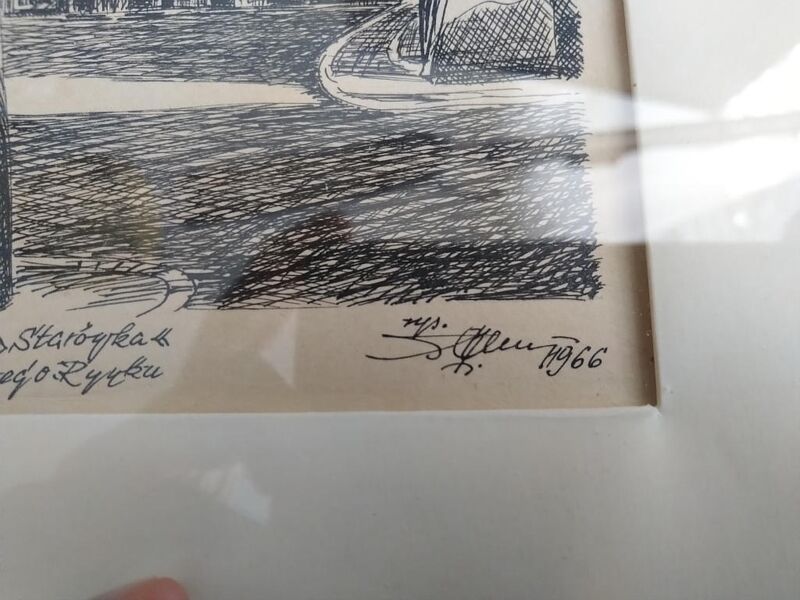 »Starówka«
ego Rynku
rys.
1966